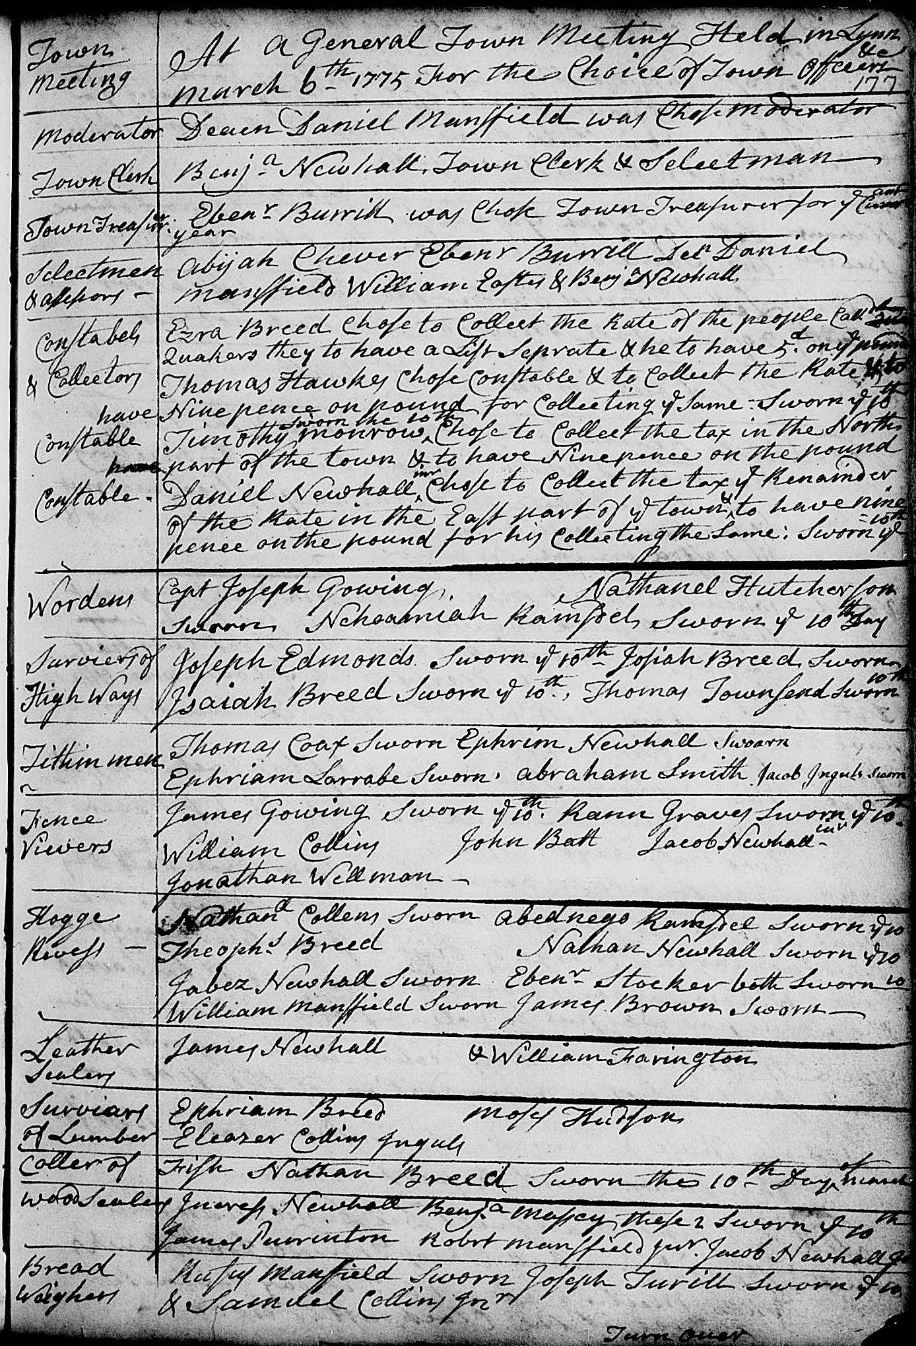 Town At a General Town Meeting Held in Lynn
Meeting March 6th 1775 For the Choice of Town Officers &c
177
Moderator Deacn Daniel Mansfield was Chose Moderator
Town Clerk Benja Newhall, Town Clerk & Selectman
Town Treasurer Ebenr Burrill was Chose Town Treasurer for ye Currant
year
Selectmen Abijah Chever Ebenr Burrill Dea Daniel
& assessors - Mansfield William Eastes & Benja Newhall
Constabels Ezra Breed Chose to Collect the Rate of the people Calld
Quakers they to have a List Seprate & he to have 5d. on ye pound
& Collectors Thomas Hawkes Chose Constable & to Collect the Rate & to
have Nine pence on pound for Collecting ye Same - Sworn ye 10th
Sworn the 10th
Constable Timothy Monrow, Chose to Collect the tax in the North
part of the town & to have Nine pence on the pound
Constable - Daniell Newhall junr Chose to Collect the tax ye Remainder
of the Rate in the East part of ye town & to have nine
pence on the pound for his Collecting the Same: Sworn ye 10th
Wordens Capt Joseph Gowing, Nathanel Hutcherson
Sworn Neheamiah Ramsdel Sworn ye 10th Day
Surviers of Joseph Edmonds Sworn ye 10th Josiah Breed, Sworn
High Ways Isaiah Breed Sworn ye 10th, Thomas Townsend Sworn 10th
Tithin men Thomas Coax Sworn Ephrim Newhall Swoarn
Ephriam Larrabe Sworn, abraham Smith Jacob Inguls Sworn
Fence James Gowing Sworn ye 10th. Rann Graves Sworn ye 10th
Viewers William Collins John Batt Jacob Newhall junr
Jonathan Wellman -
Hogge Nathand Collens Sworn Abednego Ramsdel Sworn ye 10
Revess - Theophs Breed Nathan Newhall Sworn ye 10
Jabez Newhall Sworn Ebenr Stocker both Sworn 10
William Mansfield Sworn James Brown Sworn
Leather James Newhall & William Farington
Sealers
Surviars Ephriam Breed Moses Hudson
of Lumber Eleazer Collins Inguls
Coller of Fish Nathan Breed Sworn the 10th Day of March
Wood Sealers Incress Newhall Benja Massey these 2 Sworn ye 10th
James Purrinton Robrt Mansfield junr. Jacob Newhall
Bread Rufus Mansfield Sworn Joseph Turill Sworn ye 10
Weighers & Samuel Collins Junr
Turn over